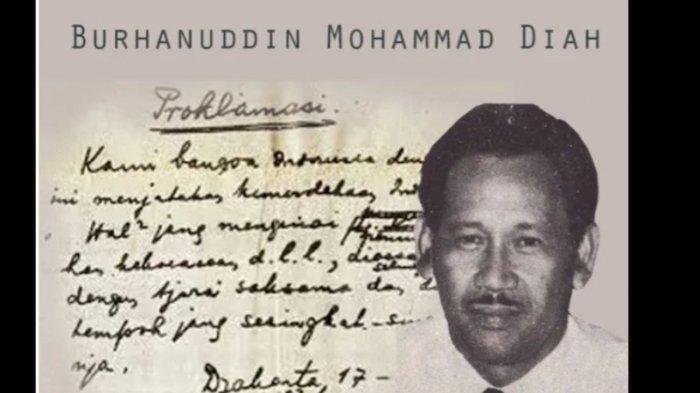 BURHANUDDIN MOHAMMAD DIAH
Proklamasi.
Kami bangsa Indonesia den
ini menjatakan kemerdekaan Ind
Hal² jang mengenai
kan kekoeasaan d.l.l.,
dengan tjara saksama dan d
tempoh jang sesingkat-sin
nja.
Djakarta, 17-